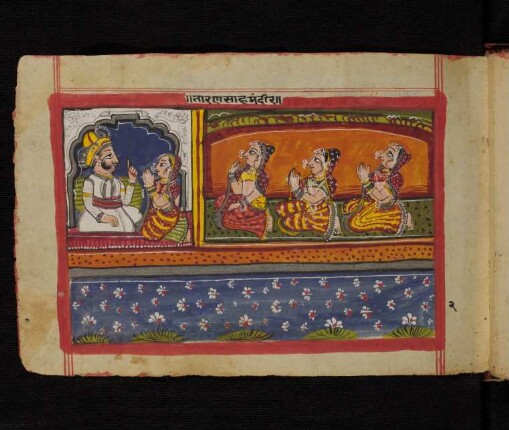 ॥तारणसाहमंदीर॥
२